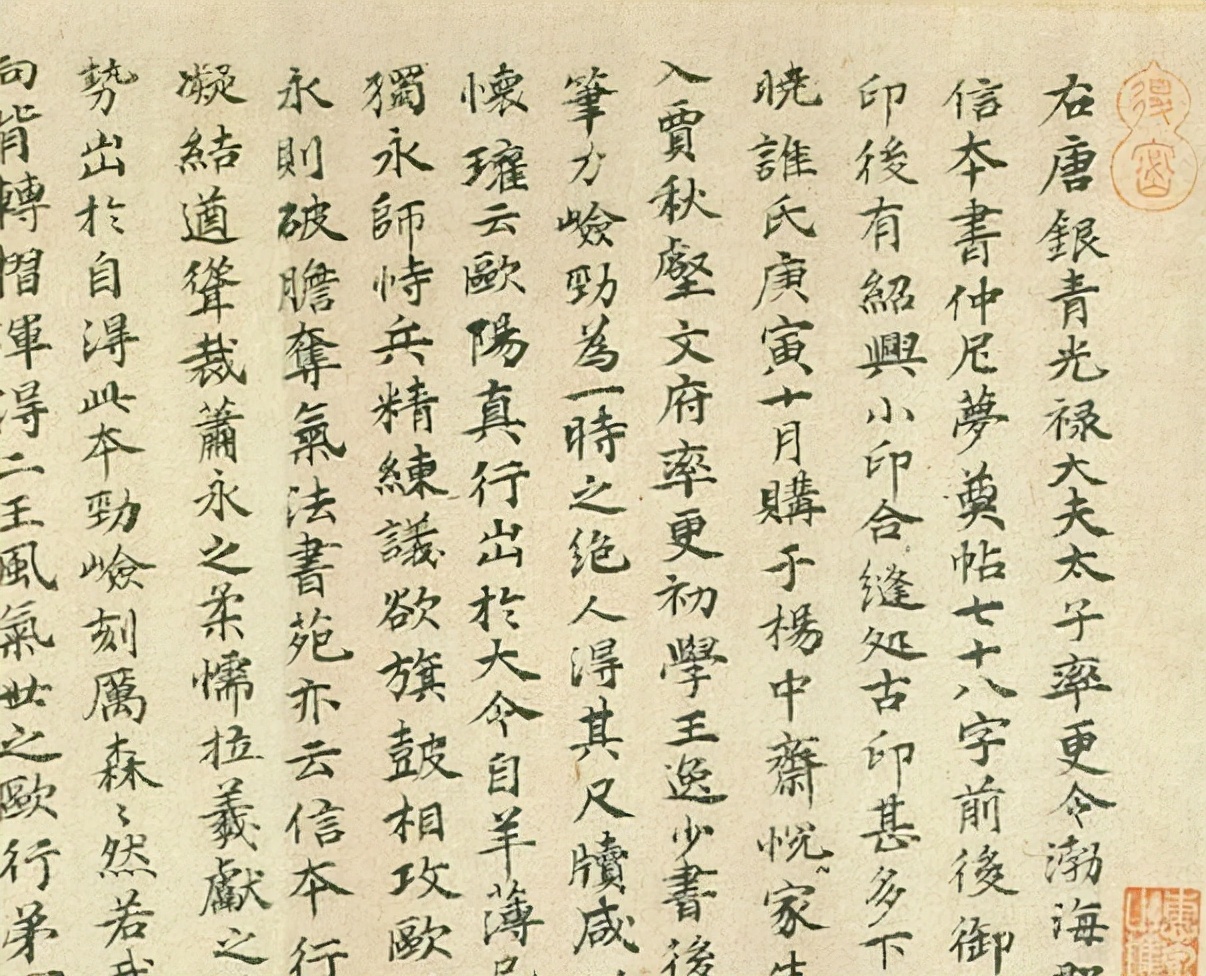 右唐銀青光祿大夫太子率更令渤海
信本書仲尼夢奠帖七十八字前後御
印後有紹興小印合縫処古印甚多下
曉誰氏庚寅十月購于楊中齋恱家
入賈秋壑文府率更初學王逸少書後
筆力嶮勁為一時之絶人得其尺牘咸
懐瓘云歐陽真行出於大令自羊薄
獨永師恃兵精練議欲旗鼓相攻歐
永則破膽奪氣法書苑亦云信本行
凝結遒聳裁蕭永之柔懦拉羲獻之
勢出於自得此本勁嶮刻厲森〻然若
向背轉摺渾得二王風氣世之歐行弟